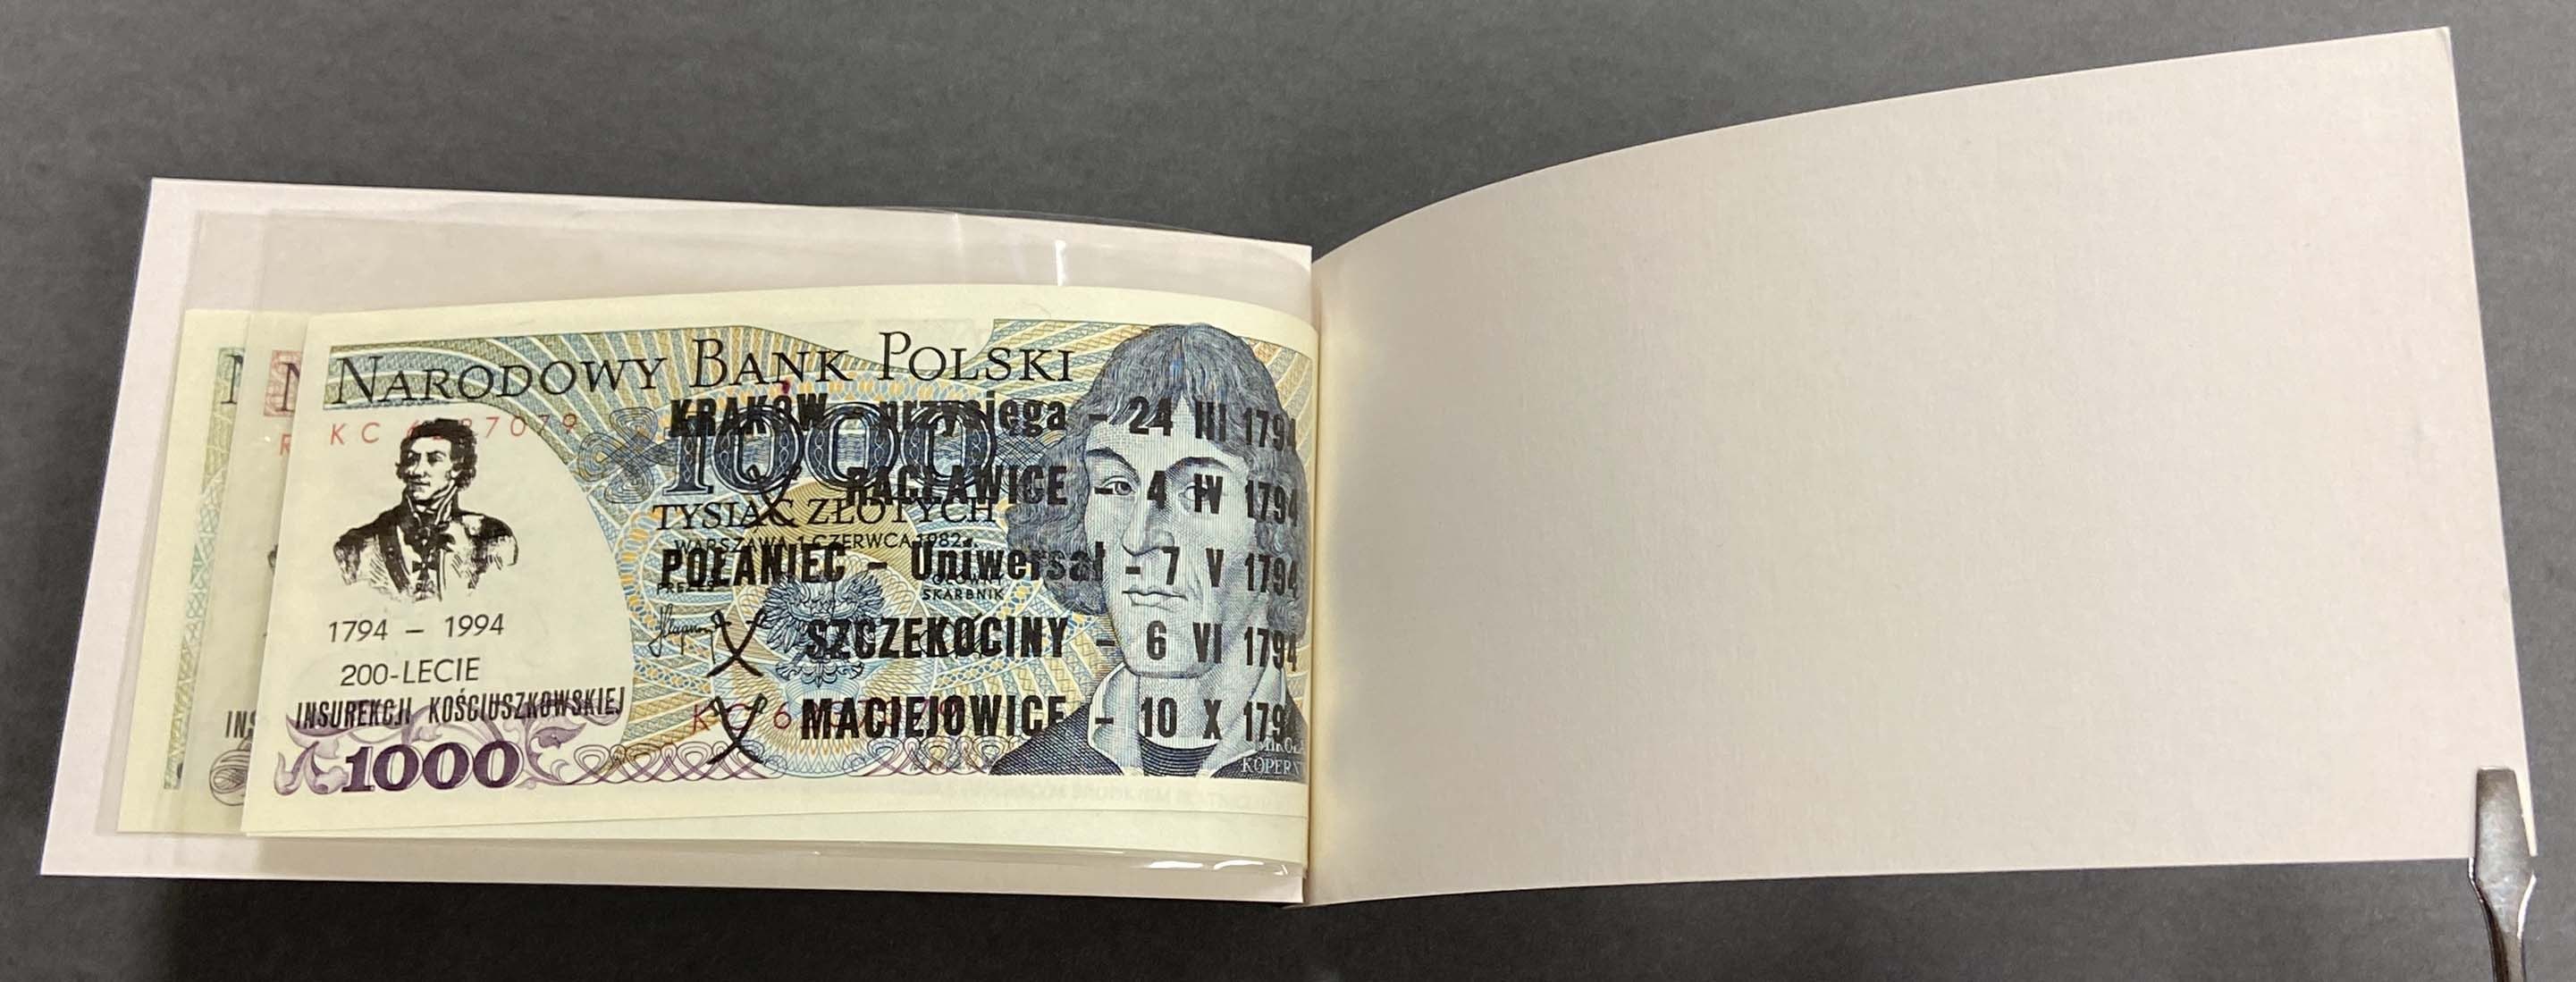 NARODOWY BANK POLSKI
KRAKÓW - przysięga - 24 III 1794
1000
RACŁAWICE - 4 IV 1794
TYSIĄC ZŁOTYCH
WARSZAWA 1 CZERWCA 1982 r.
POŁANIEC - Uniwersał - 7 V 1794
PREZES
GŁÓWNY
SKARBNIK
SZCZEKOCINY - 6 VI 1794
MACIEJOWICE - 10 X 179
KC 6
MIKOŁA
KOPERNI
KC 6 87079
1794 - 1994
200-LECIE
INSUREKCJI KOŚCIUSZKOWSKIEJ
1000
N
N
R
INS